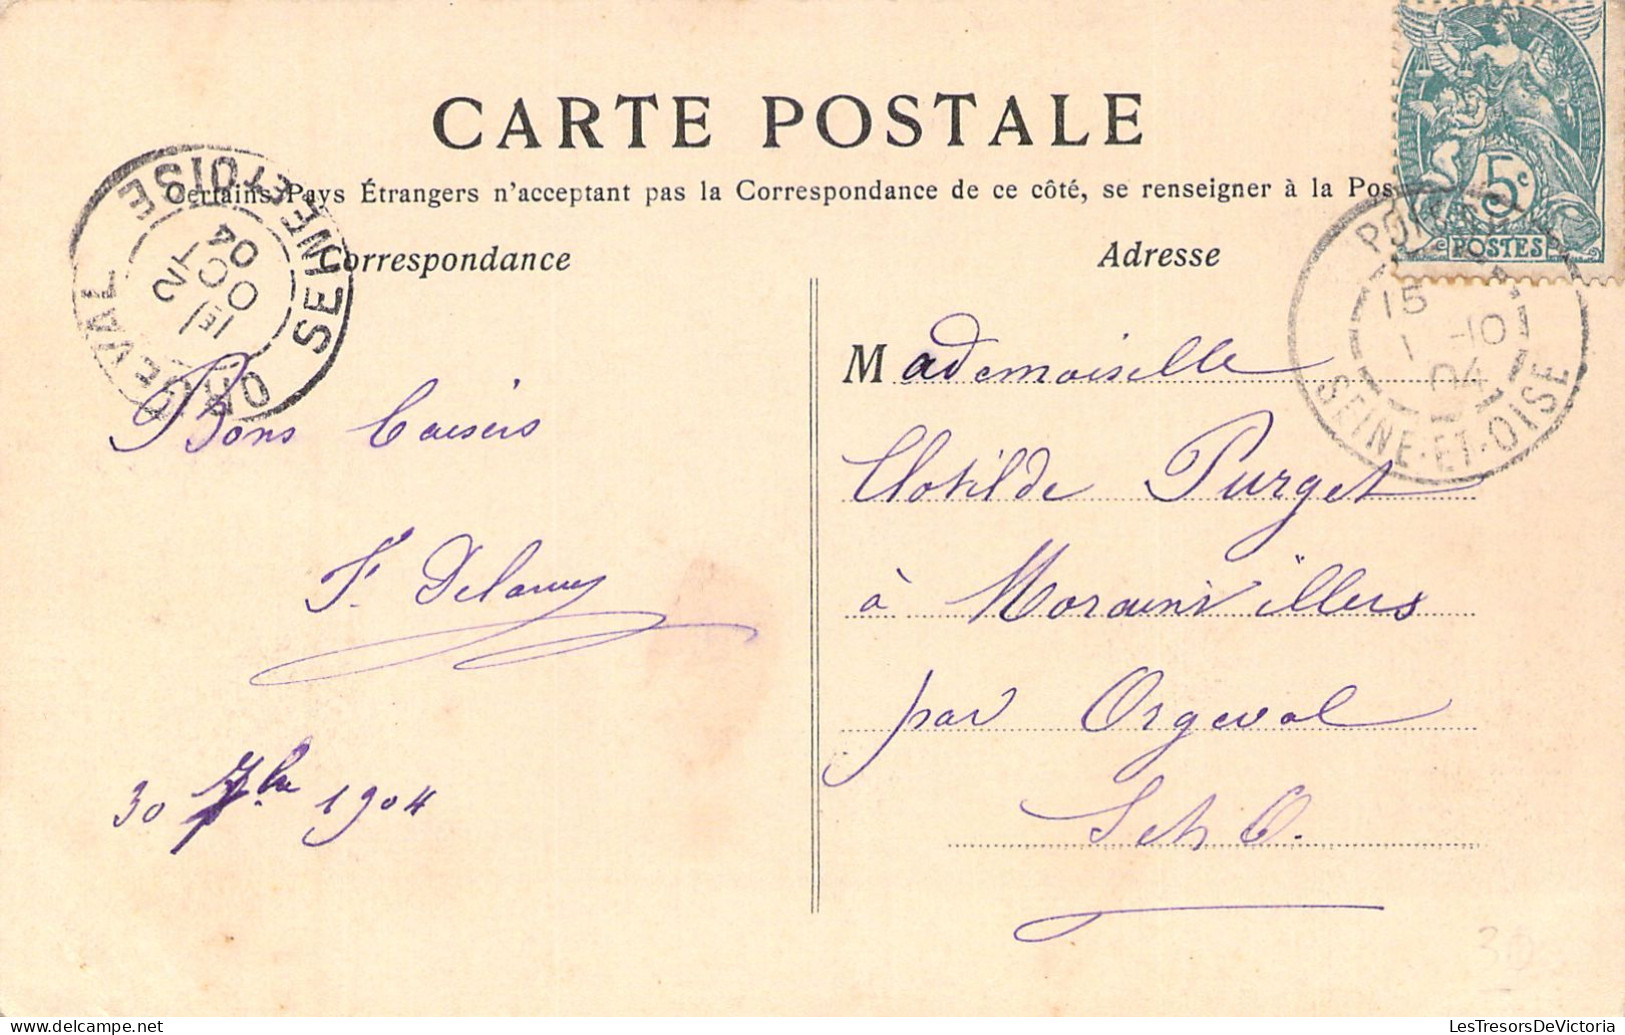 CARTE POSTALE
Certains Pays Étrangers n'acceptant pas la Correspondance de ce côté, se renseigner à la Pos
Correspondance
Adresse
ORGEVAL SEINE ET OISE
1E
2 OCT
04
5c
POSTES
15
1 -10
04
SEINE-ET-OISE
Bons baisers
F. Delamy
30 7bre 1904
Mademoiselle
Clotilde Purget
à Morainvillers
par Orgeval
S et O.
30
LesTresorsDeVictoria